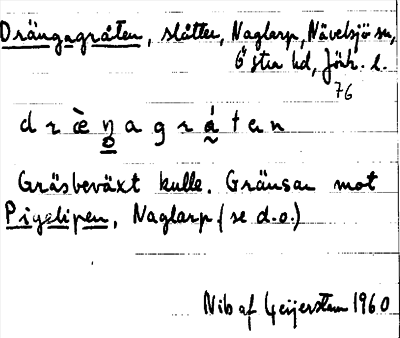 Drängagråten, slåtter, Naglarp, Nävelsjö sn,
Östra hd, Jönk. l.
76
d r æ̀ ŋ a g r á t ə n
Gräsbeväxt kulle. Gränsar mot
Pigelipen, Naglarp (se d.o.)
Nib af Geijerstam 1960